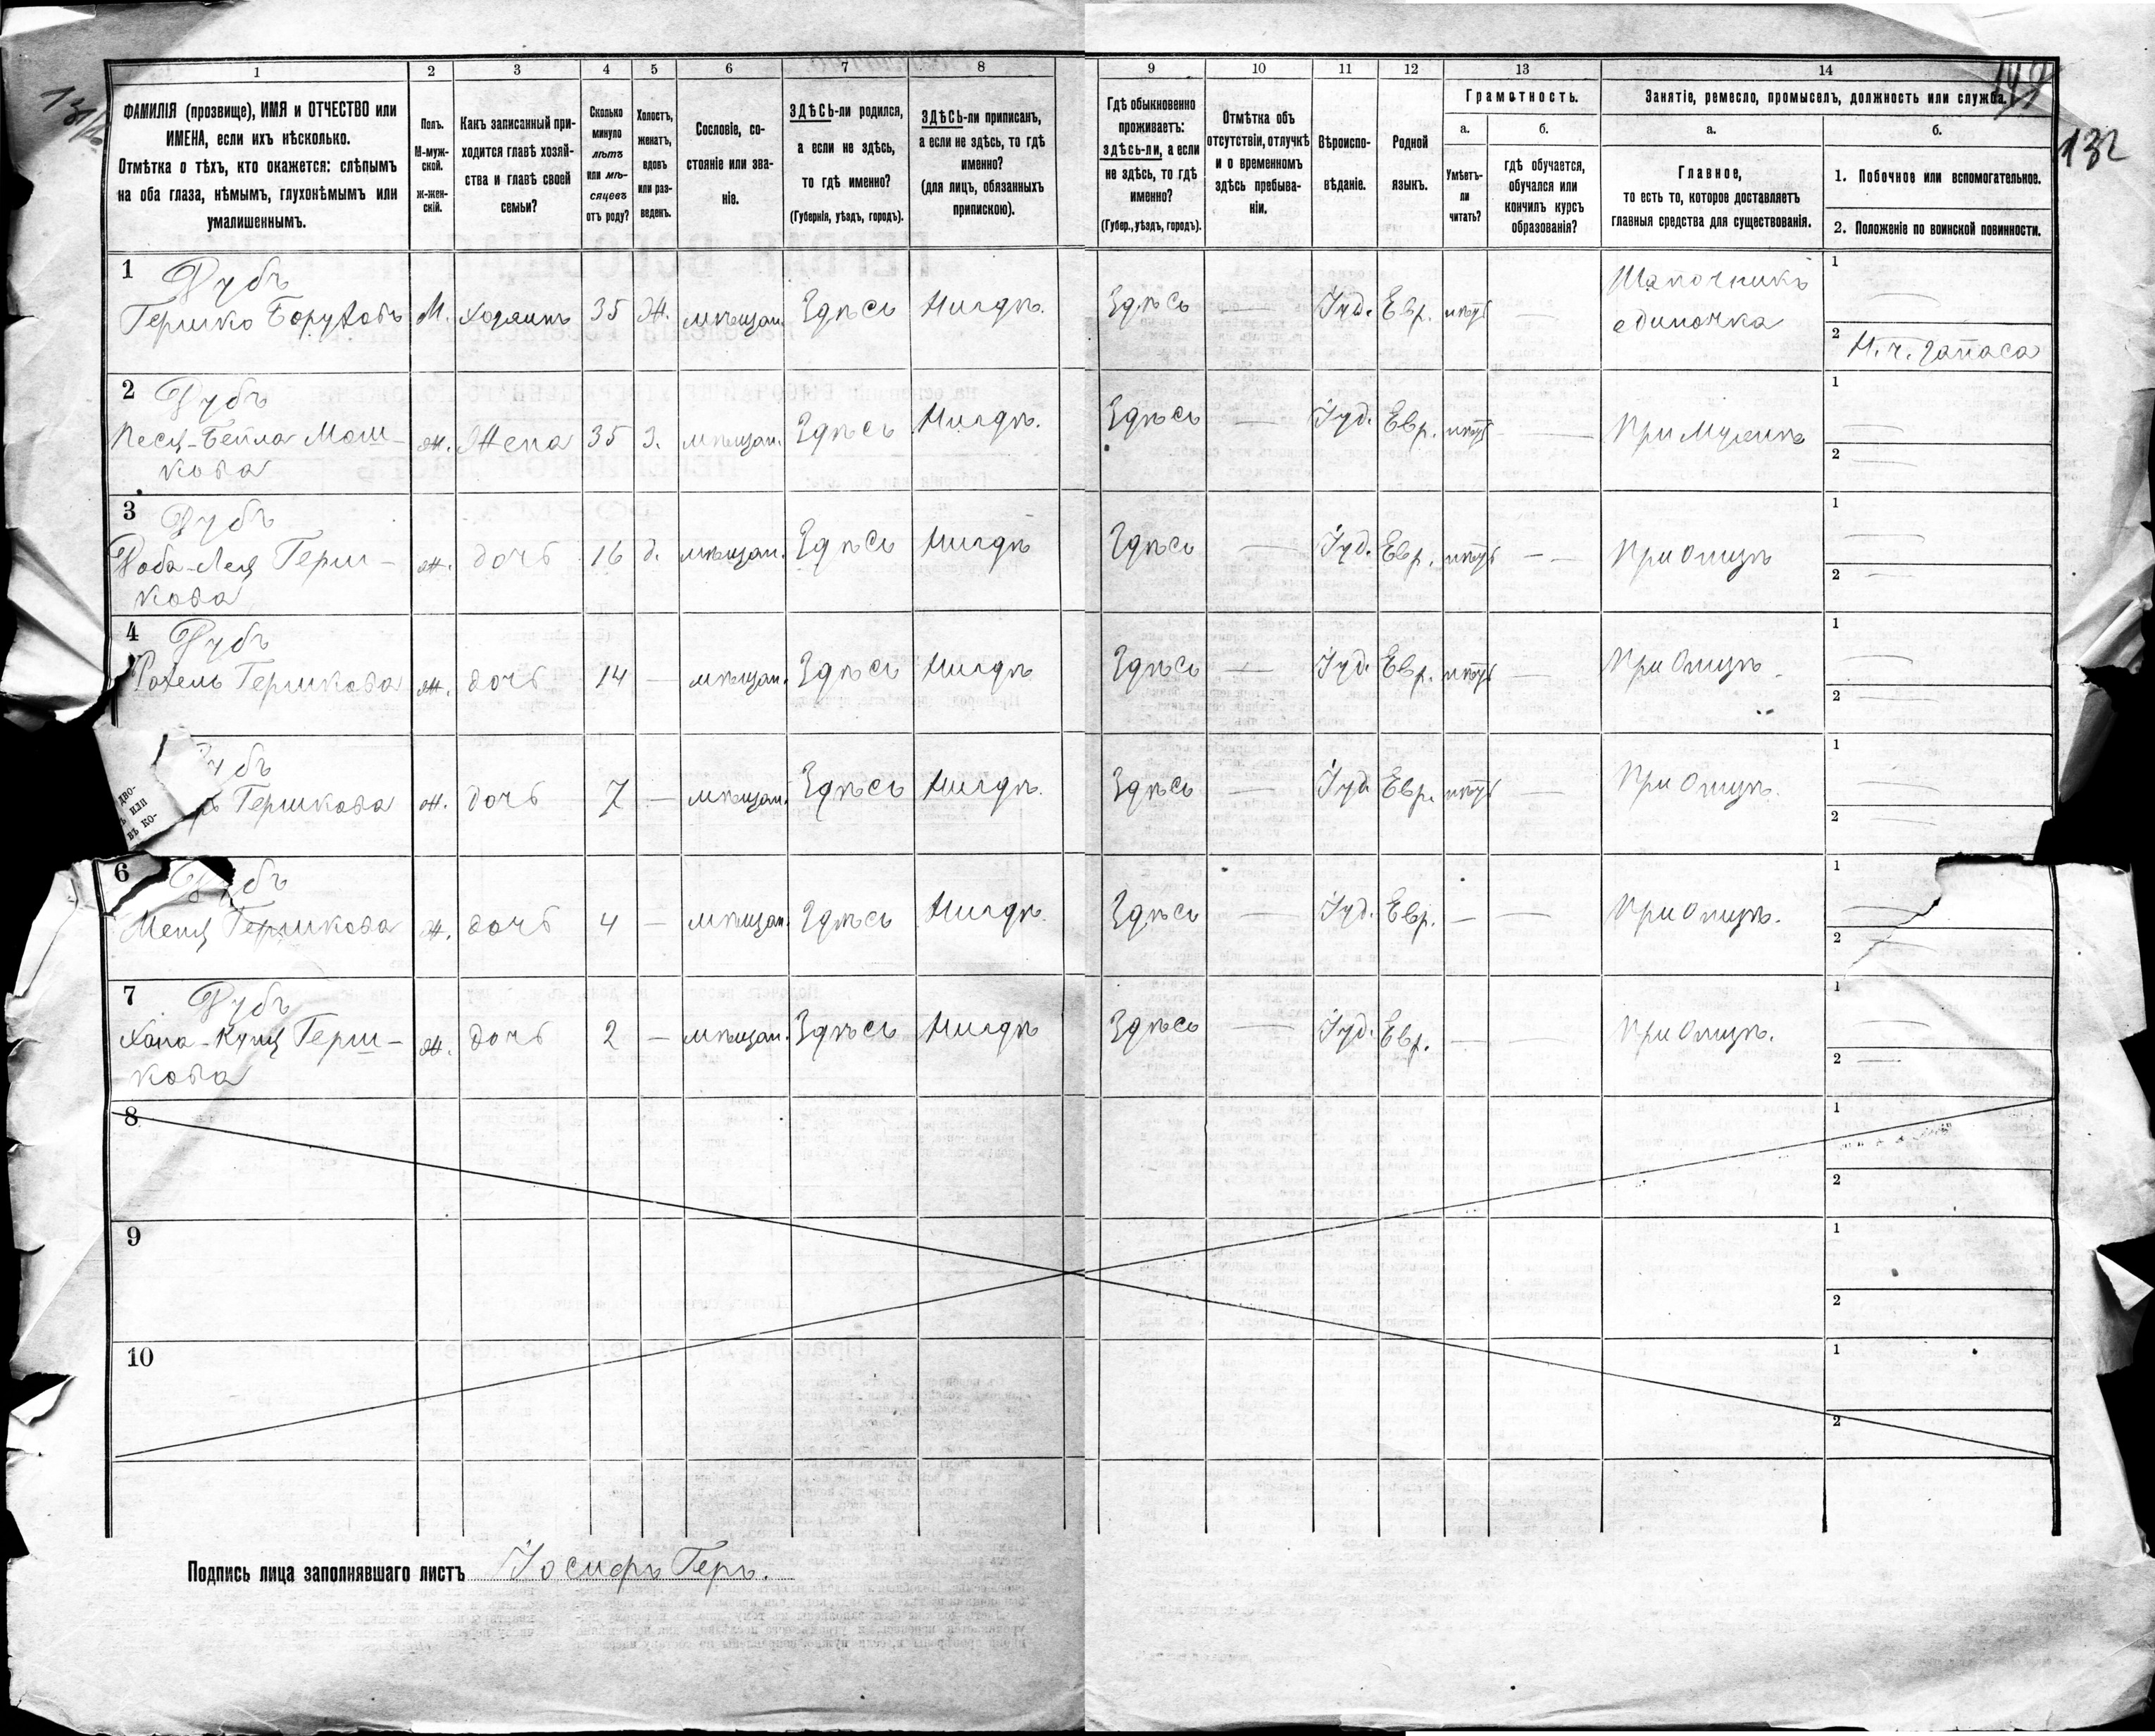 132
1 2 3 4 5 6 7 8 9 10 11 12 13 14
ФАМИЛІЯ (прозвище), ИМЯ и ОТЧЕСТВО или
ИМЕНА, если ихъ нѣсколько.
Отмѣтка о тѣхъ, кто окажется: слѣпымъ
на оба глаза, нѣмымъ, глухонѣмымъ или
умалишеннымъ.
Полъ.
М-муж-
ской.
ж-жен-
скій.
Какъ записанный при-
ходится главѣ хозяй-
ства и главѣ своей
семьи?
Сколько
минуло
лѣтъ
или мѣ-
сяцевъ
отъ роду?
Холостъ,
женатъ,
вдовъ
или раз-
веденъ.
Сословіе, со-
стояніе или зва-
ніе.
ЗДѢСЬ-ли родился,
а если не здѣсь,
то гдѣ именно?
(Губернія, уѣздъ, городъ).
ЗДѢСЬ-ли приписанъ,
а если не здѣсь, то гдѣ
именно?
(для лицъ, обязанныхъ
припискою).
Гдѣ обыкновенно
проживаетъ:
здѣсь-ли, а если
не здѣсь, то гдѣ
именно?
(Губер., уѣздъ, городъ).
Отмѣтка объ
отсутствіи, отлучкѣ
и о временномъ
здѣсь пребыва-
ніи.
Вѣроиспо-
вѣданіе.
Родной
языкъ.
Грамотность.
а.
Умѣетъ-
ли
читать?
б.
гдѣ обучается,
обучался или
кончилъ курсъ
образованія?
Занятіе, ремесло, промыселъ, должность или служба.
а.
Главное,
то есть то, которое доставляетъ
главныя средства для существованія.
б.
1. Побочное или вспомогательное.
2. Положеніе по воинской повинности.
1 Дубъ
Гершко Боруховъ М. хозяинъ 35 Ж. мѣщан. Здѣсь Нигдѣ. Здѣсь — Іуд. Евр. нѣтъ — Шапочникъ
одиночка
1 —
2 Н. ч. запаса
2 Дубъ
Песя-Бейла Мош-
кова ж. Жена 35 З. мѣщан. Здѣсь Нигдѣ. Здѣсь — Іуд. Евр. нѣтъ — При мужѣ
1 —
2 —
3 Дубъ
Доба-Лея Герш-
кова ж. дочь 16 д. мѣщан. Здѣсь Нигдѣ Здѣсь — Іуд. Евр. нѣтъ — — При отцѣ
1 —
2 —
4 Дубъ
Рохель Гершкова ж. дочь 14 — мѣщан. Здѣсь Нигдѣ Здѣсь — Іуд. Евр. нѣтъ — При отцѣ
1 —
2 —
убъ
Гершкова ж. дочь 7 — мѣщан. Здѣсь Нигдѣ. Здѣсь — Іуд. Евр. нѣтъ — При отцѣ.
1
2
дво-
ъ или
въ ко-
6 Дубъ
Меня Гершкова ж. дочь 4 — мѣщан. Здѣсь Нигдѣ. Здѣсь — Іуд. Евр. — — При отцѣ.
1 —
2 —
7 Дубъ
Хана-Куня Герш-
кова ж. дочь 2 — мѣщан. Здѣсь Нигдѣ Здѣсь — Іуд. Евр. — — При отцѣ.
1 —
2 —
8
1
2
9
1
2
10
1
2
Подпись лица заполнявшаго листъ Іосифъ Геръ.